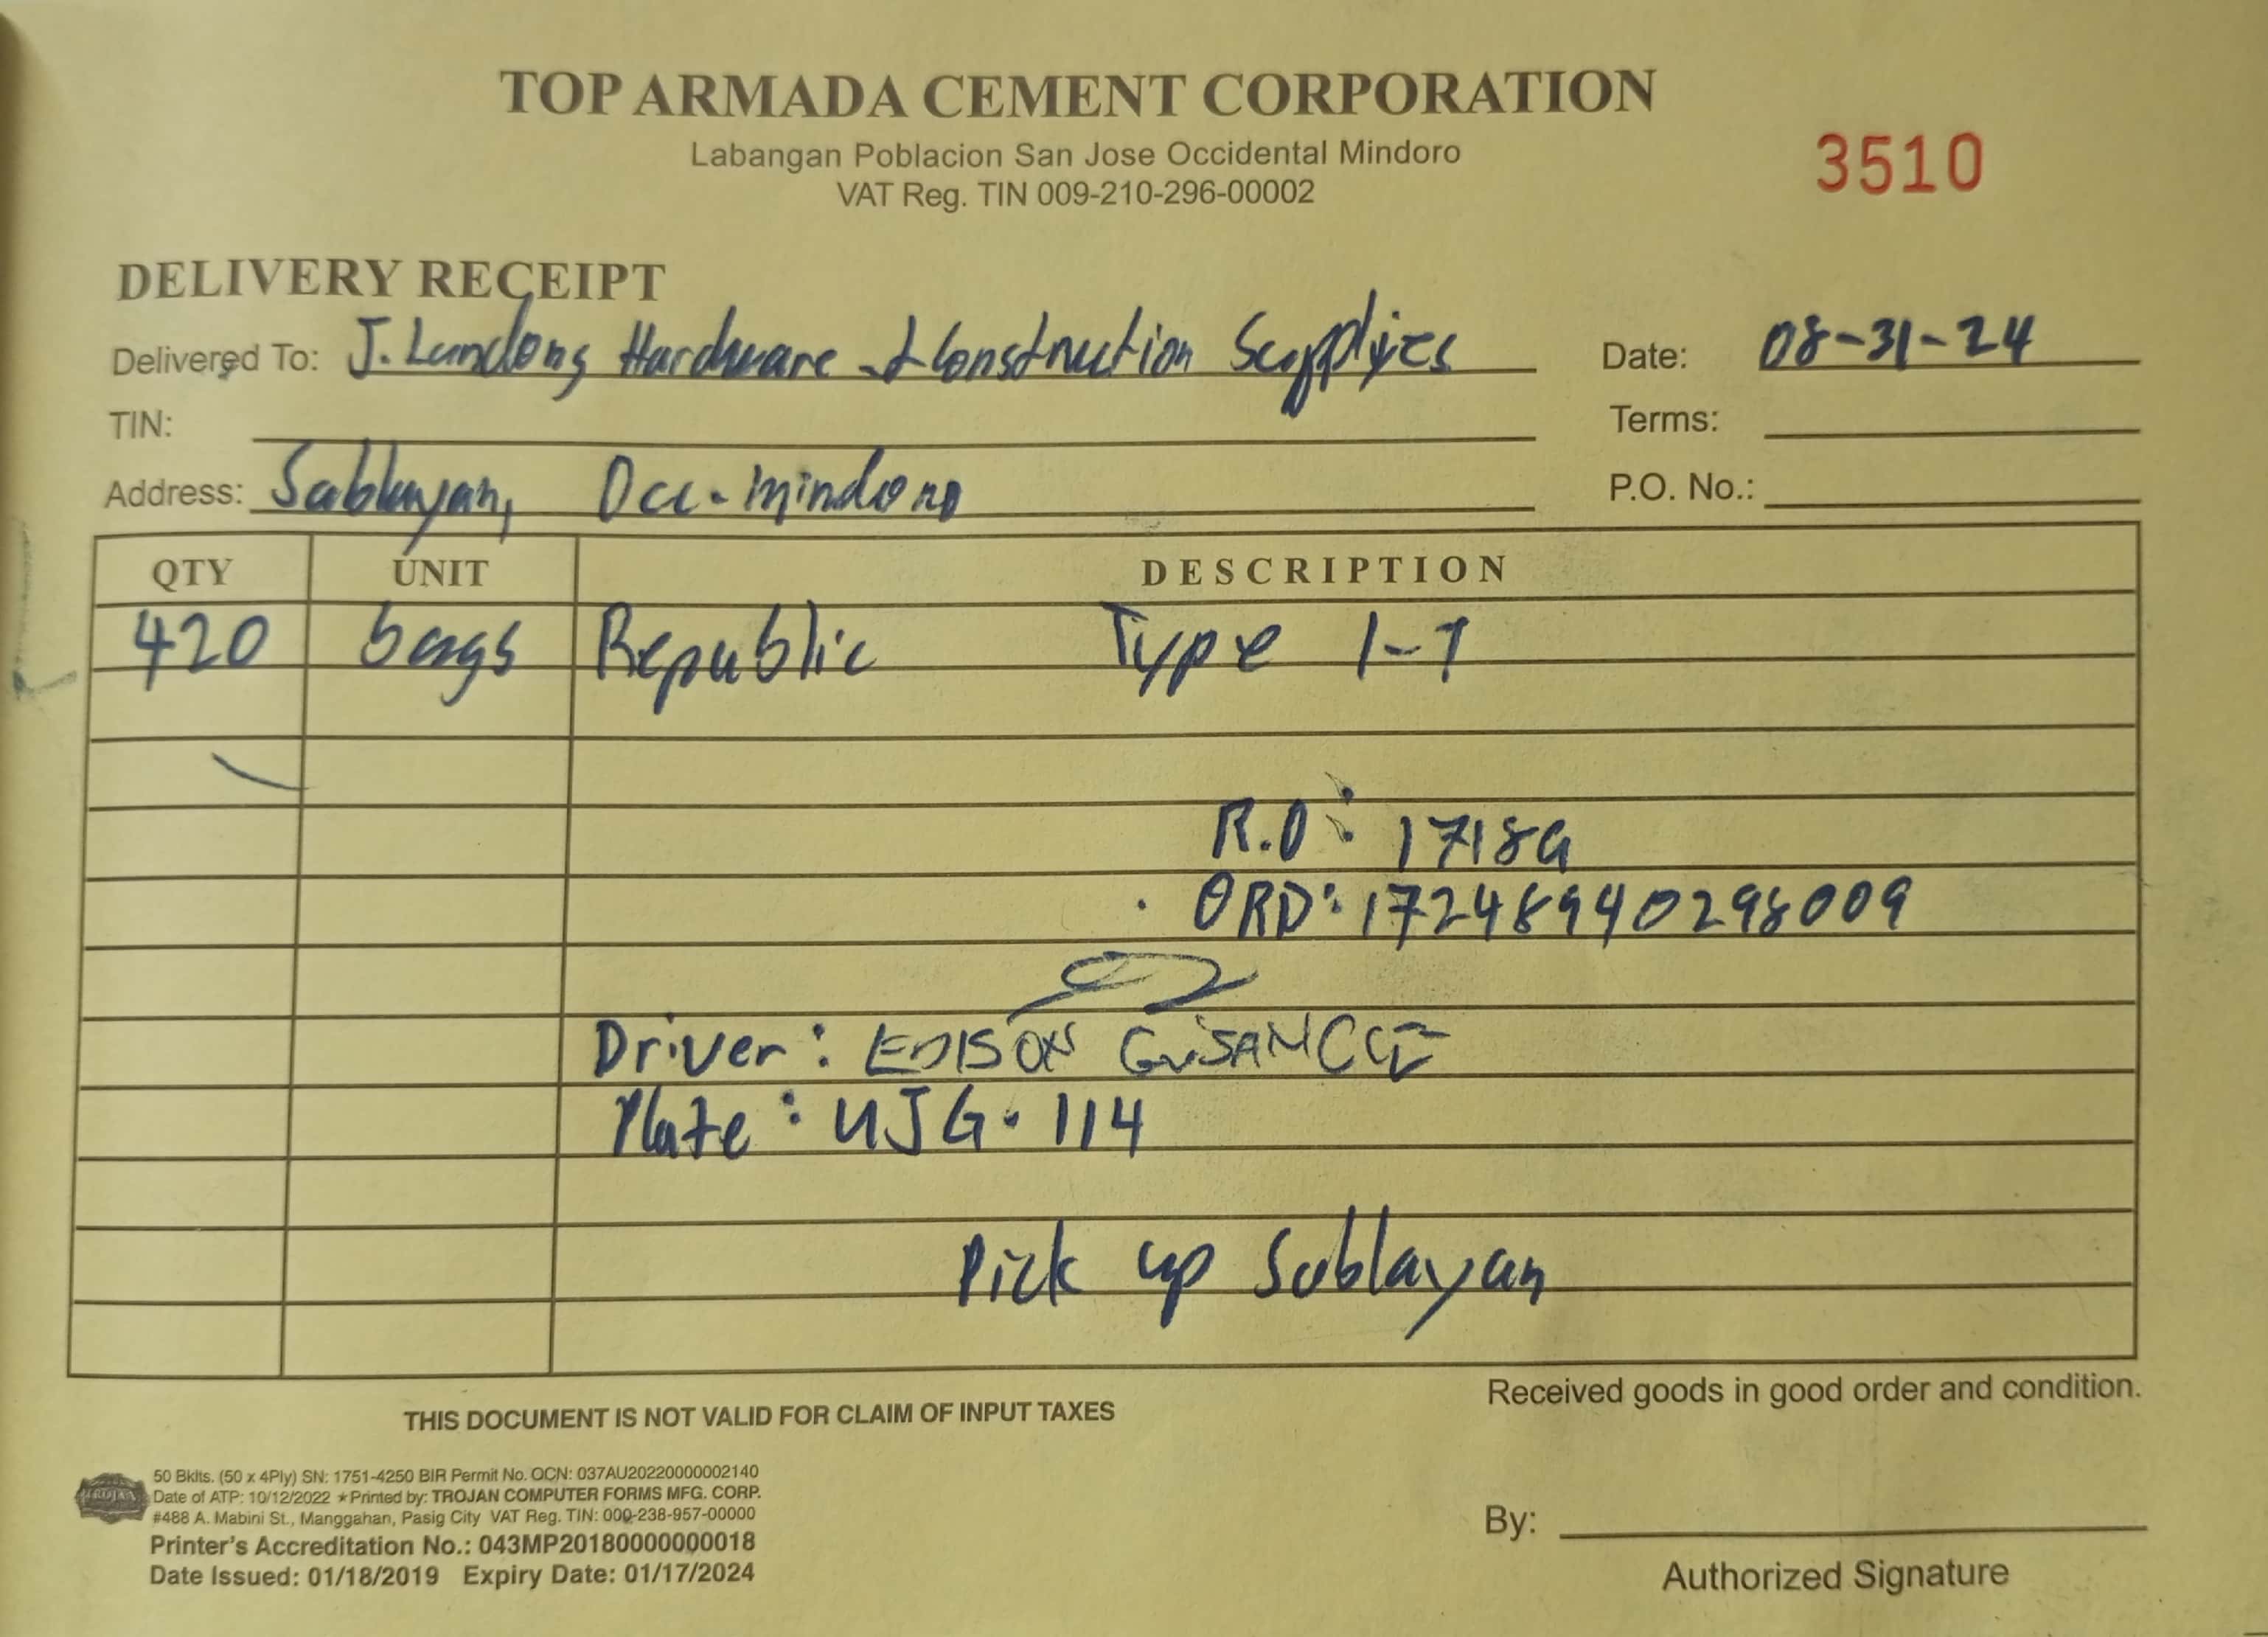 TOP ARMADA CEMENT CORPORATION
Labangan Poblacion San Jose Occidental Mindoro
VAT Reg. TIN 009-210-296-00002
3510
DELIVERY RECEIPT
Delivered To: J. Lundong Hardware & Construction Supplies
Date: 08-31-24
TIN:
Terms:
Address: Sablayan, Occ. Mindoro
P.O. No.:
QTY UNIT DESCRIPTION
420 bags Republic Type 1-T
R.O: 17189
ORD: 17248940298009
Driver: EDISON
Plate: UJG. 114
Pick up Sablayan
THIS DOCUMENT IS NOT VALID FOR CLAIM OF INPUT TAXES
Received goods in good order and condition.
TROJAN
50 Bklts. (50 x 4Ply) SN: 1751-4250 BIR Permit No. OCN: 037AU20220000002140
Date of ATP: 10/12/2022 ★Printed by: TROJAN COMPUTER FORMS MFG. CORP.
#488 A. Mabini St., Manggahan, Pasig City VAT Reg. TIN: 000-238-957-00000
Printer's Accreditation No.: 043MP20180000000018
Date Issued: 01/18/2019 Expiry Date: 01/17/2024
By:
Authorized Signature